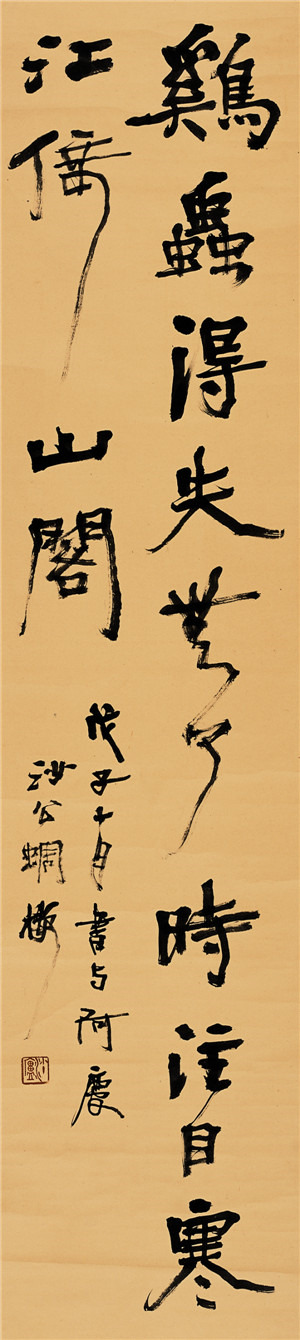 鷄蟲得失無了時注目寒
江倚山閣
戊子十月書与阿慶
沙公蜩橄